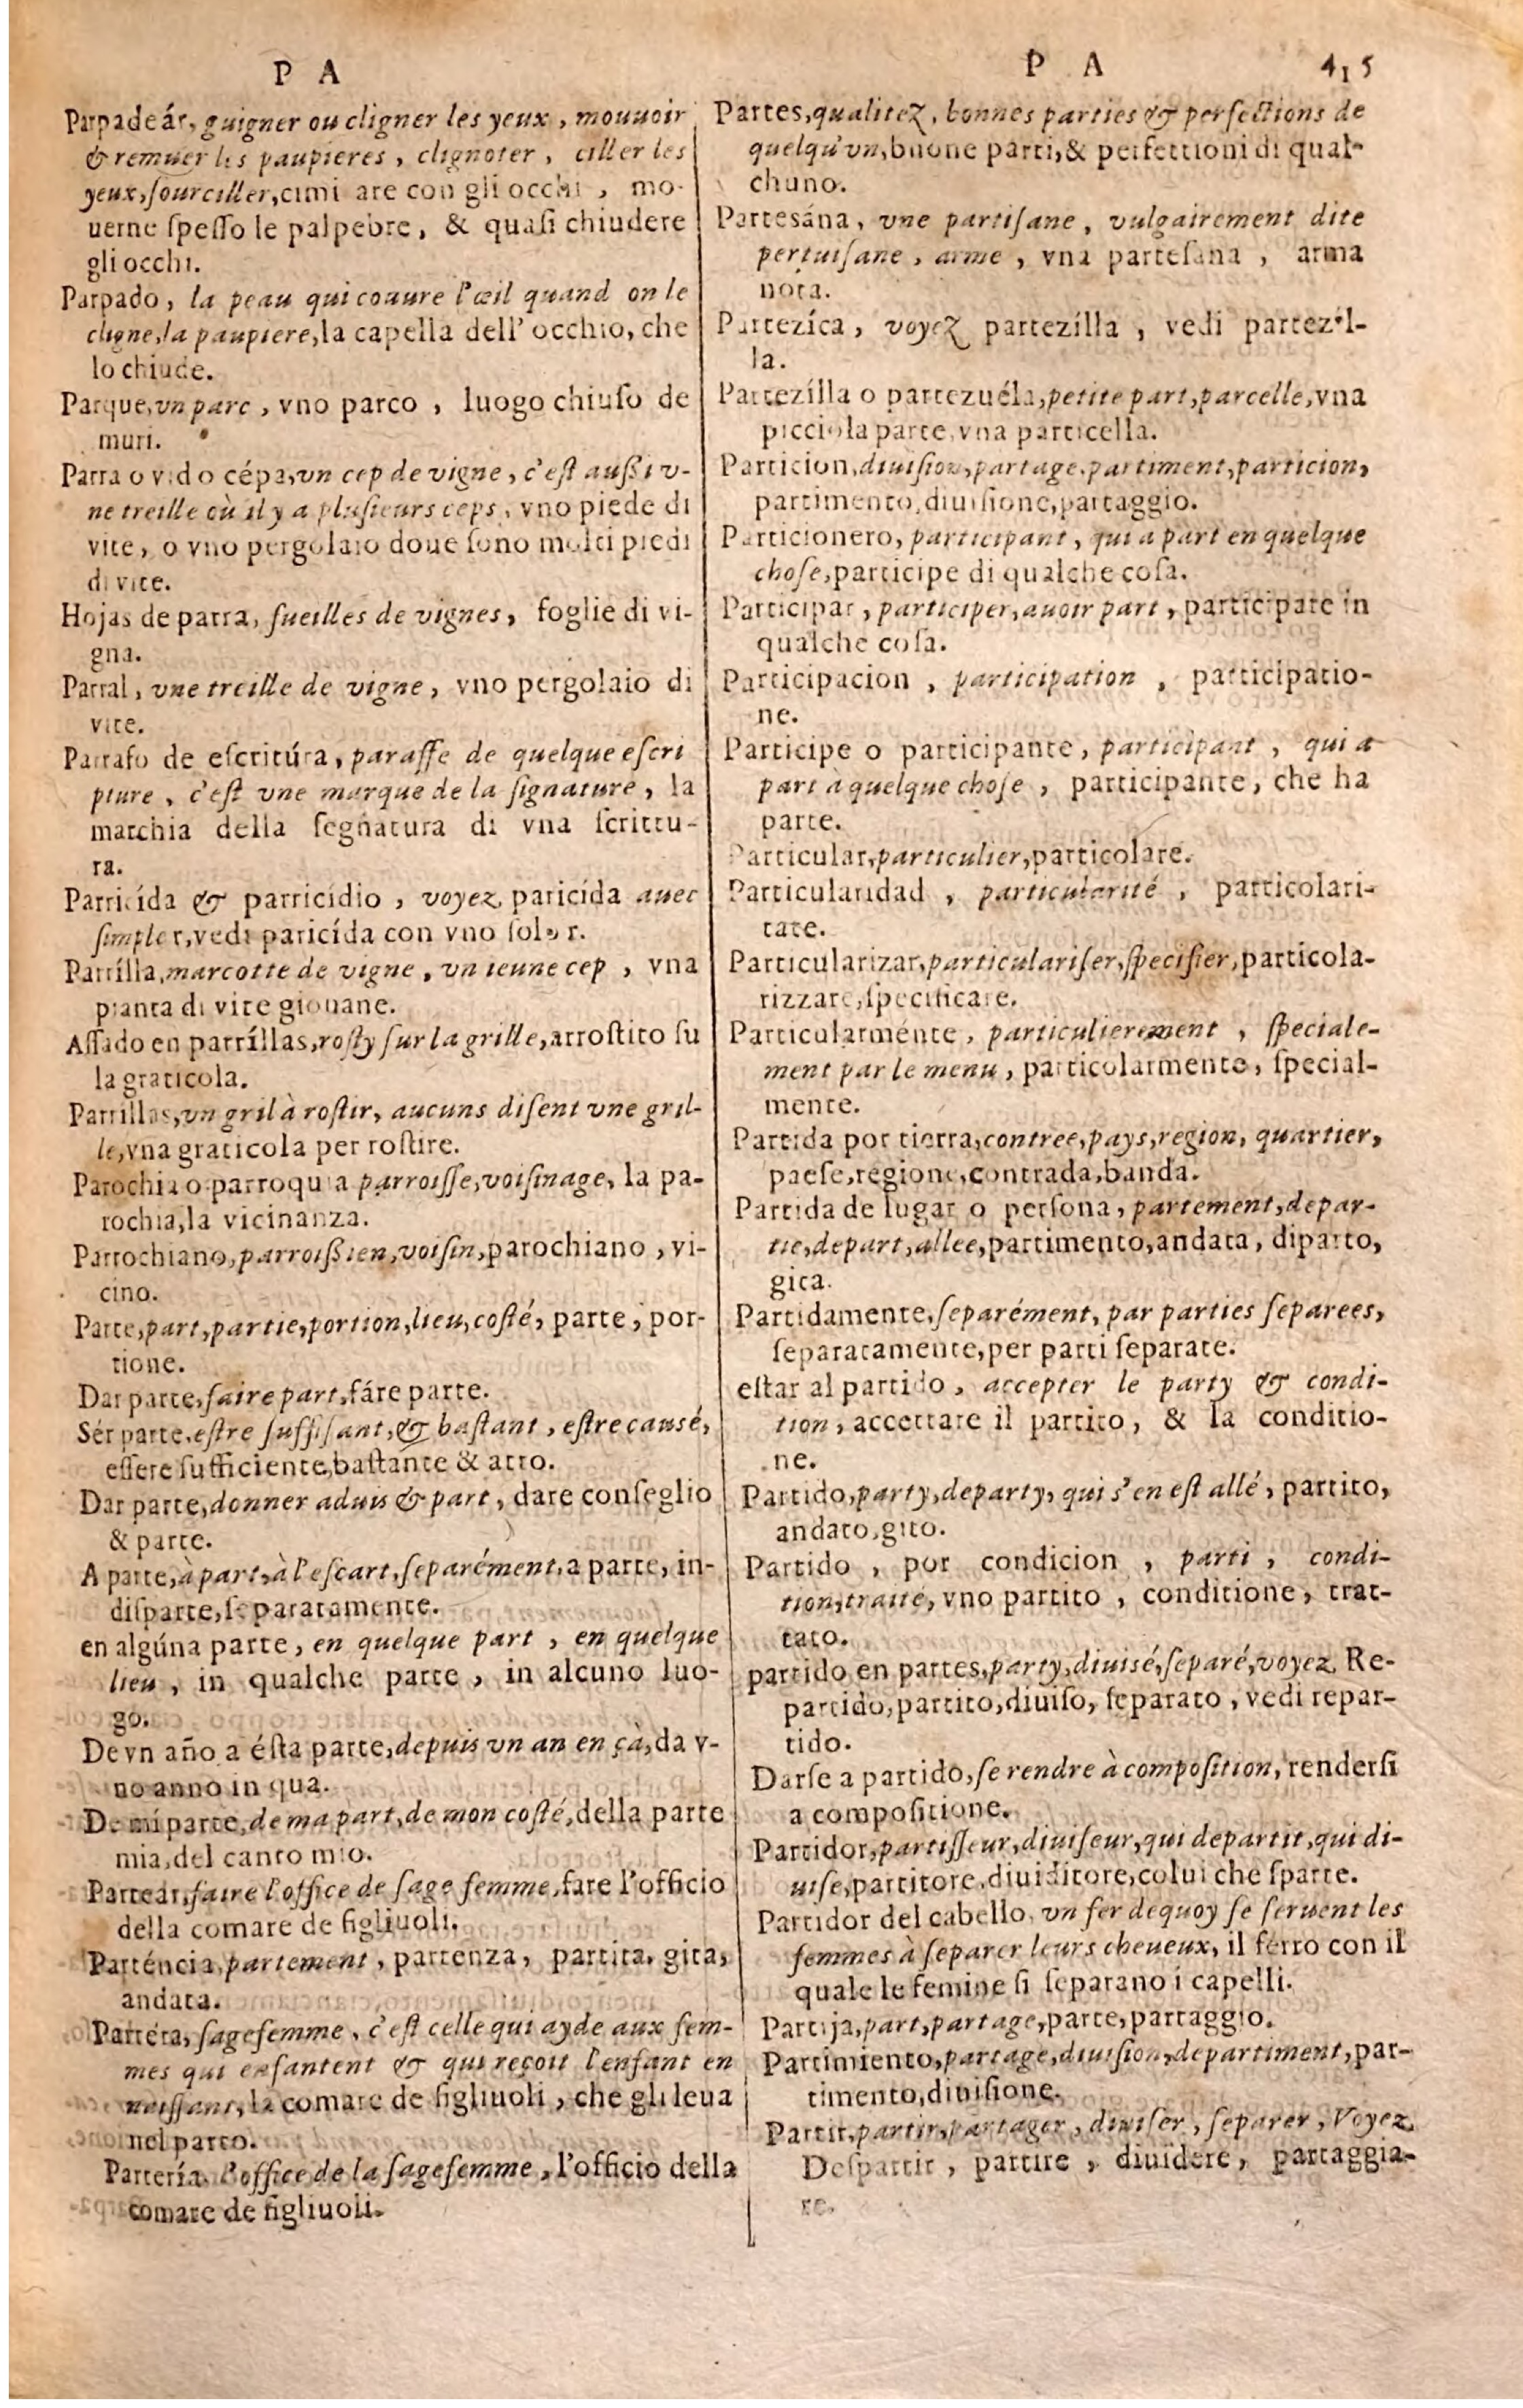 P A
Parpadeár, guigner ou cligner les yeux, mouuoir
& remuer les paupieres, clignoter, ciller les
yeux, sourciller, cimi are con gli occhi, mo-
uerne speſſo le palpebre, & quaſi chiudere
gli occhi.
Parpado, la peau qui couure l'œil quand on le
cligne, la paupiere, la capella dell' occhio, che
lo chiude.
Parque, vn parc, vno parco, luogo chiuſo de
muri.
Parra o vido cépa, vn cep de vigne, c'eſt auſſi v-
ne treille où il y a pluſieurs ceps, vno piede di
vite, o vno pergolaio doue ſono molti piedi
di vite.
Hojas de parra, fueilles de vignes, foglie di vi-
gna.
Parral, vne treille de vigne, vno pergolaio di
vite.
Parrafo de eſcritúra, paraffe de quelque eſcri
pture, c'eſt vne marque de la ſignature, la
marchia della ſegnatura di vna ſcrittu-
ra.
Parricída & parricidio, voyez paricída auec
ſimple r, vedi paricída con vno ſolo r.
Parrílla, marcotte de vigne, vn ieune cep, vna
pianta di vite giouane.
Aſſado en parríllas, roſty ſur la grille, arroſtito ſu
la graticola.
Parrillas, vn gril à roſtir, aucuns diſent vne gril-
le, vna graticola per roſtire.
Parochia o parroquia parroiſſe, voiſinage, la pa-
rochia, la vicinanza.
Parrochiano, parroiſſien, voiſin, parochiano, vi-
cino.
Parte, part, partie, portion, lieu, coſté, parte, por-
tione.
Dar parte, faire part, fáre parte.
Sér parte, eſtre ſuffiſant, & baſtant, eſtre causé,
eſſere ſufficiente, baſtante & atto.
Dar parte, donner aduis & part, dare conſeglio
& parte.
A parte, à part, à l'eſcart, ſeparément, a parte, in-
diſparte, ſeparatamente.
en algúna parte, en quelque part, en quelque
lieu, in qualche parte, in alcuno luo-
go.
De vn año a éſta parte, depuis vn an en çà, da v-
no anno in qua.
De mí parte, de ma part, de mon coſté, della parte
mia, del canto mio.
Partear, faire l'office de ſage femme, fare l'officio
della comare de figliuoli.
Parténcia, partement, partenza, partita, gita,
andata.
Partéra, ſage femme, c'eſt celle qui ayde aux fem-
mes qui enfantent & qui reçoit l'enfant en
naiſſant, la comare de figliuoli, che gli leua
nel parto.
Partería, l'office de la ſage femme, l'officio della
comare de figliuoli.
P A 415
Partes, qualitez, bonnes parties & perfections de
quelqu'vn, buone parti, & perfettioni di qual-
chuno.
Partesána, vne partiſane, vulgairement dite
pertuiſane, arme, vna parteſana, arma
nota.
Partezíca, voyez partezílla, vedi partezil-
la.
Partezílla o partezuéla, petite part, parcelle, vna
picciola parte, vna particella.
Particion, diuiſion, partage, partiment, particion,
partimento, diuiſione, partaggio.
Particionero, participant, qui a part en quelque
choſe, participe di qualche coſa.
Participar, participer, auoir part, participare in
qualche coſa.
Participacion, participation, participatio-
ne.
Participe o participante, participant, qui a
part à quelque choſe, participante, che ha
parte.
Particular, particulier, particolare.
Particularidad, particularité, particolari-
tate.
Particularizar, particulariſer, ſpecifier, particola-
rizzare, ſpecificare.
Particularménte, particulierement, ſpeciale-
ment par le menu, particolarmente, ſpecial-
mente.
Partida por tierra, contree, pays, region, quartier,
paeſe, regione, contrada, banda.
Partida de lugar o perſona, partement, depar-
tie, depart, allee, partimento, andata, diparto,
gita.
Partidamente, ſeparément, par parties ſeparees,
ſeparatamente, per parti ſeparate.
eſtar al partido, accepter le party & condi-
tion, accettare il partito, & la conditio-
ne.
Partido, party, departy, qui s'en eſt allé, partito,
andato, gito.
Partido, por condicion, parti, condi-
tion, traité, vno partito, conditione, trat-
tato.
partido en partes, party, diuisé, ſeparé, voyez Re-
partido, partito, diuiſo, ſeparato, vedi repar-
tido.
Darſe a partido, ſe rendre à compoſition, renderſi
a compoſitione.
Partidor, partiſſeur, diuiſeur, qui departit, qui di-
uiſe, partitore, diuiditore, colui che ſparte.
Partidor del cabello, vn fer dequoy ſe ſeruent les
femmes à ſeparer leurs cheueux, il ferro con il
quale le femine ſi ſeparano i capelli.
Partija, part, partage, parte, partaggio.
Partimiento, partage, diuiſion, departiment, par-
timento, diuiſione.
Partir, partir, partager, diuiſer, ſeparer, Voyez
Deſpartir, partire, diuidere, partaggia-
re.